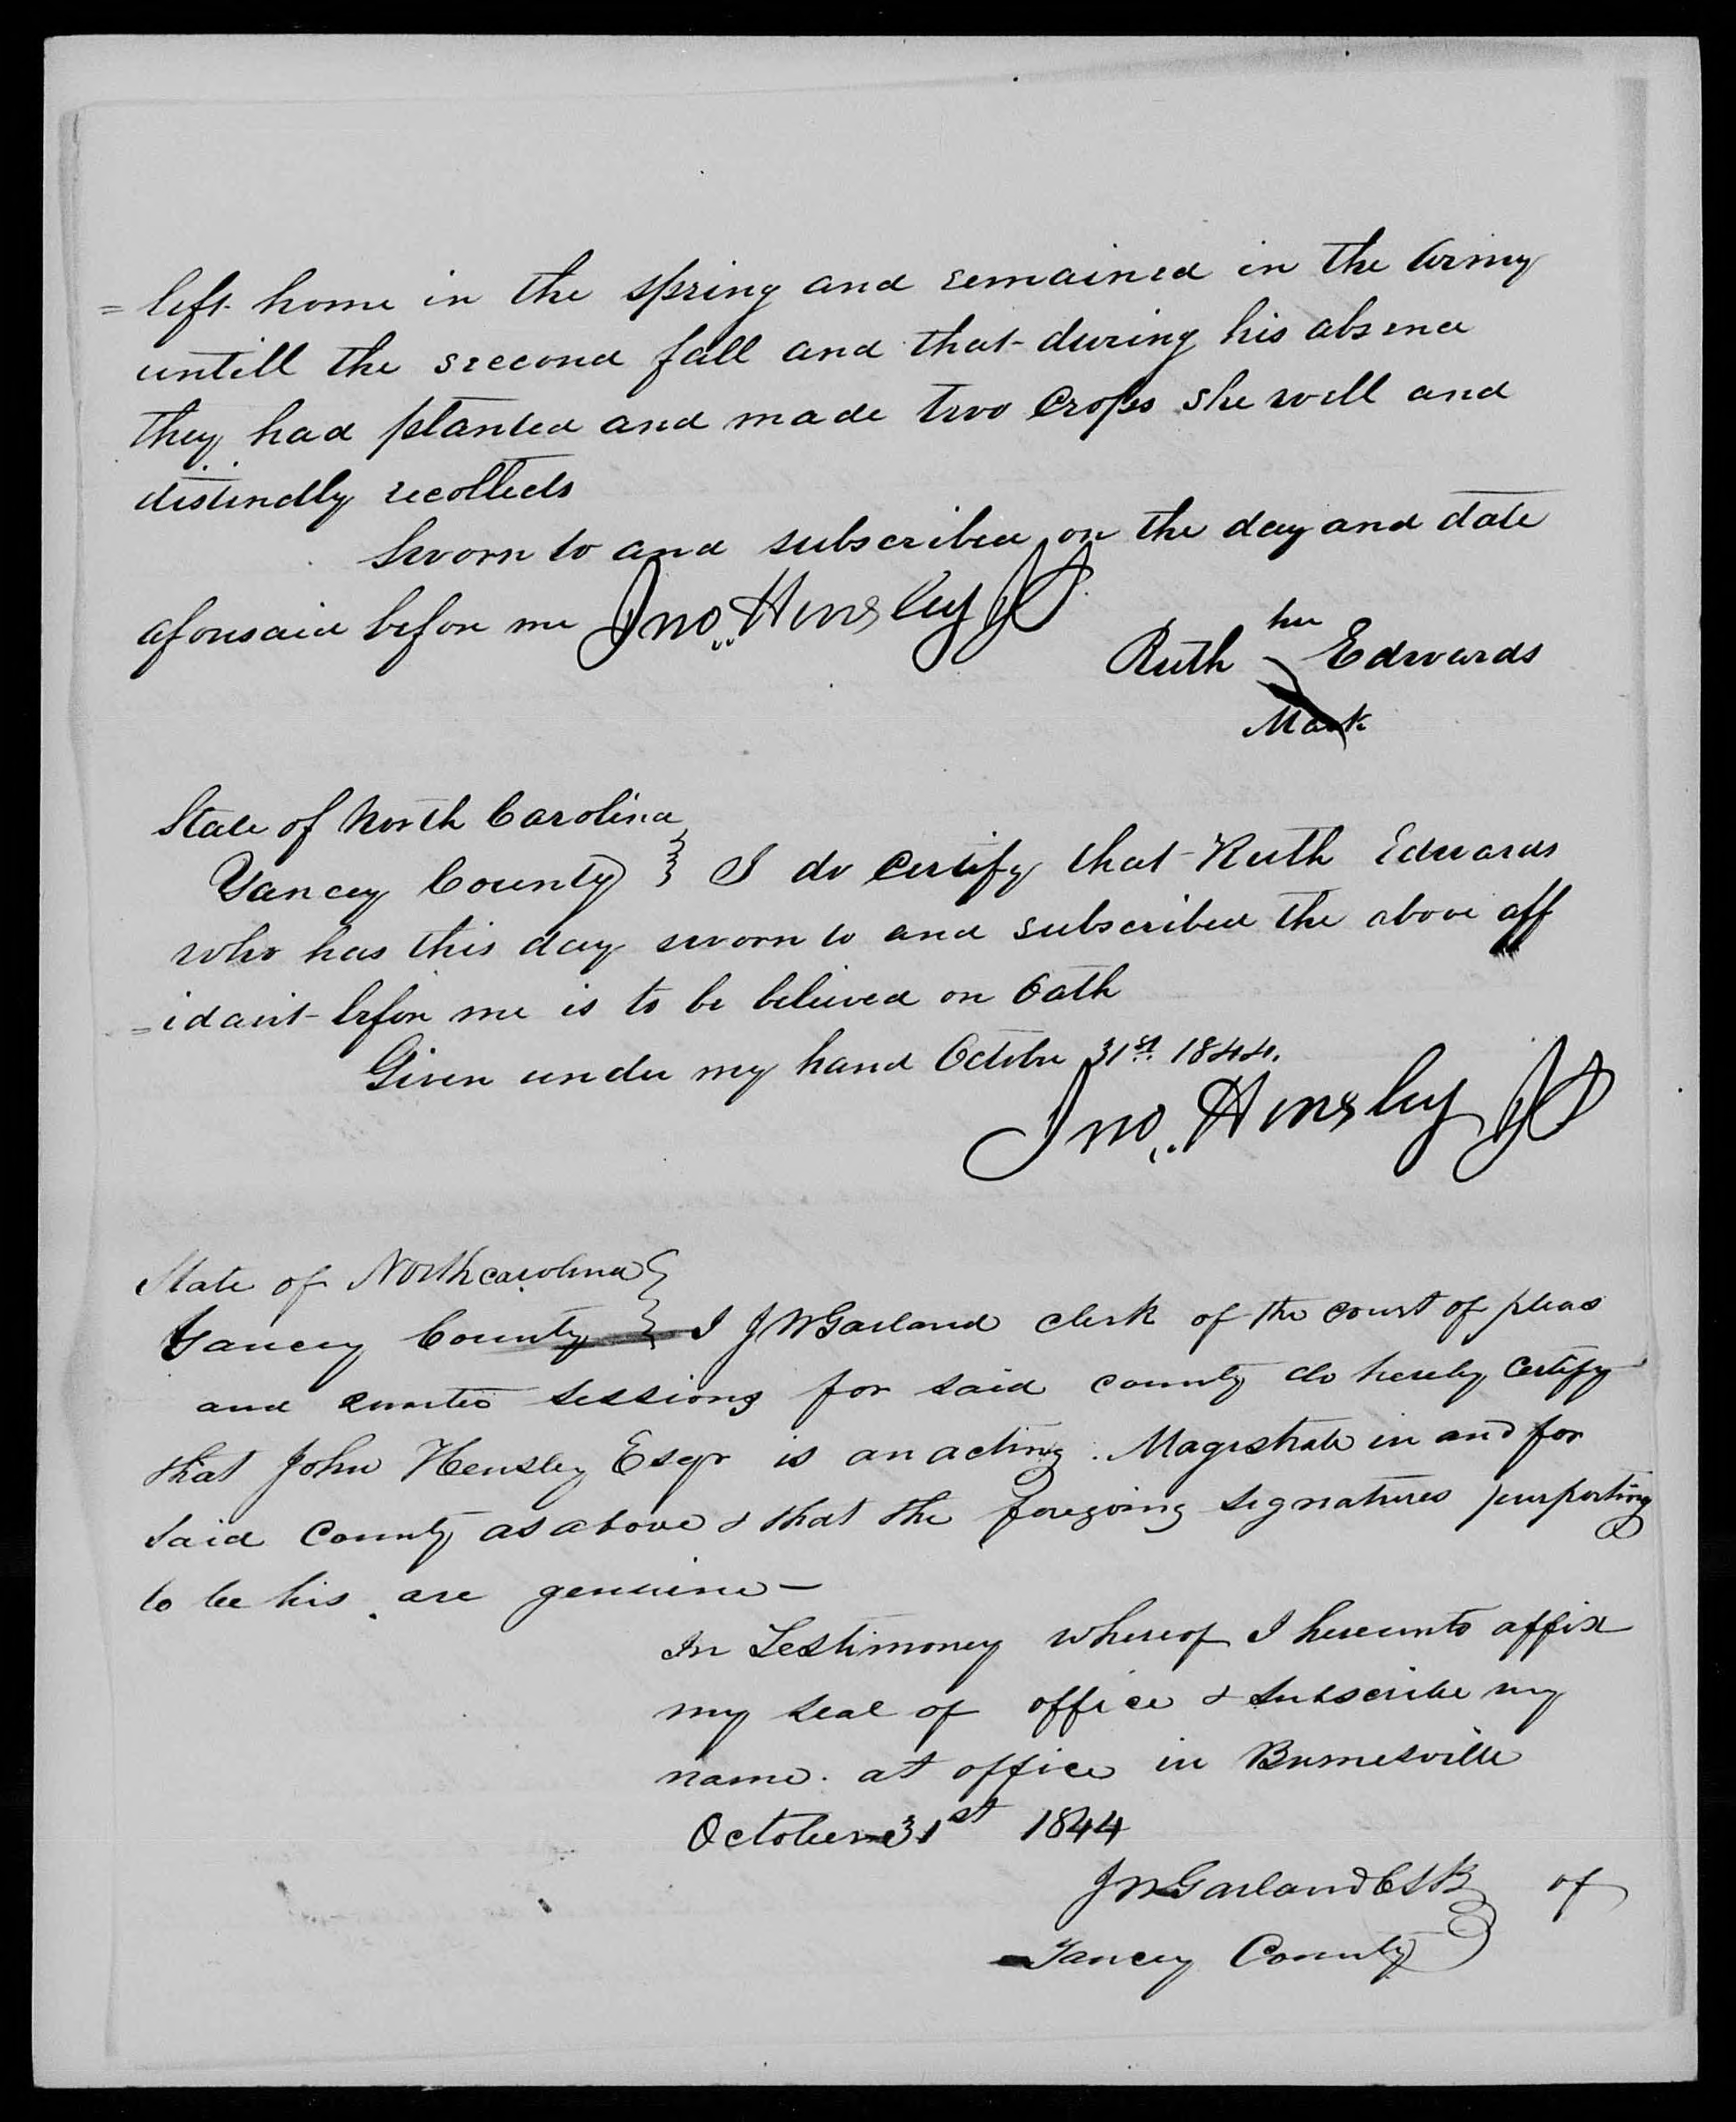 = left home in the spring and remained in the army
untill the second fall and that during his absence
they had planted and made two Crops she well and
distinctly recollects
Sworn to and subscribed on the day and date
aforesaid before me Jno. Hensley JP
her
Ruth Edwards
Mark
State of North Carolina
Yancey County } I do certify that Ruth Edwards
who has this day sworn to and subscribed the above aff
=idavit before me is to be believed on Oath
Given under my hand October 31st 1844.
Jno. Hensley JP
State of North carolina }
Yancey County } I J W Garland clerk of the court of pleas
and quarter sessions for said county do hereby Certify
that John Hensley Esqr is an acting Magistrate in and for
Said County as above & that the foregoing signatures purporting
to be his are genuine —
In Testimoney whereof I hereunto affix
my seal of office & subscribe my
name at office in Burnesville
October 31st 1844
J W Garland Clk of
Yancey County